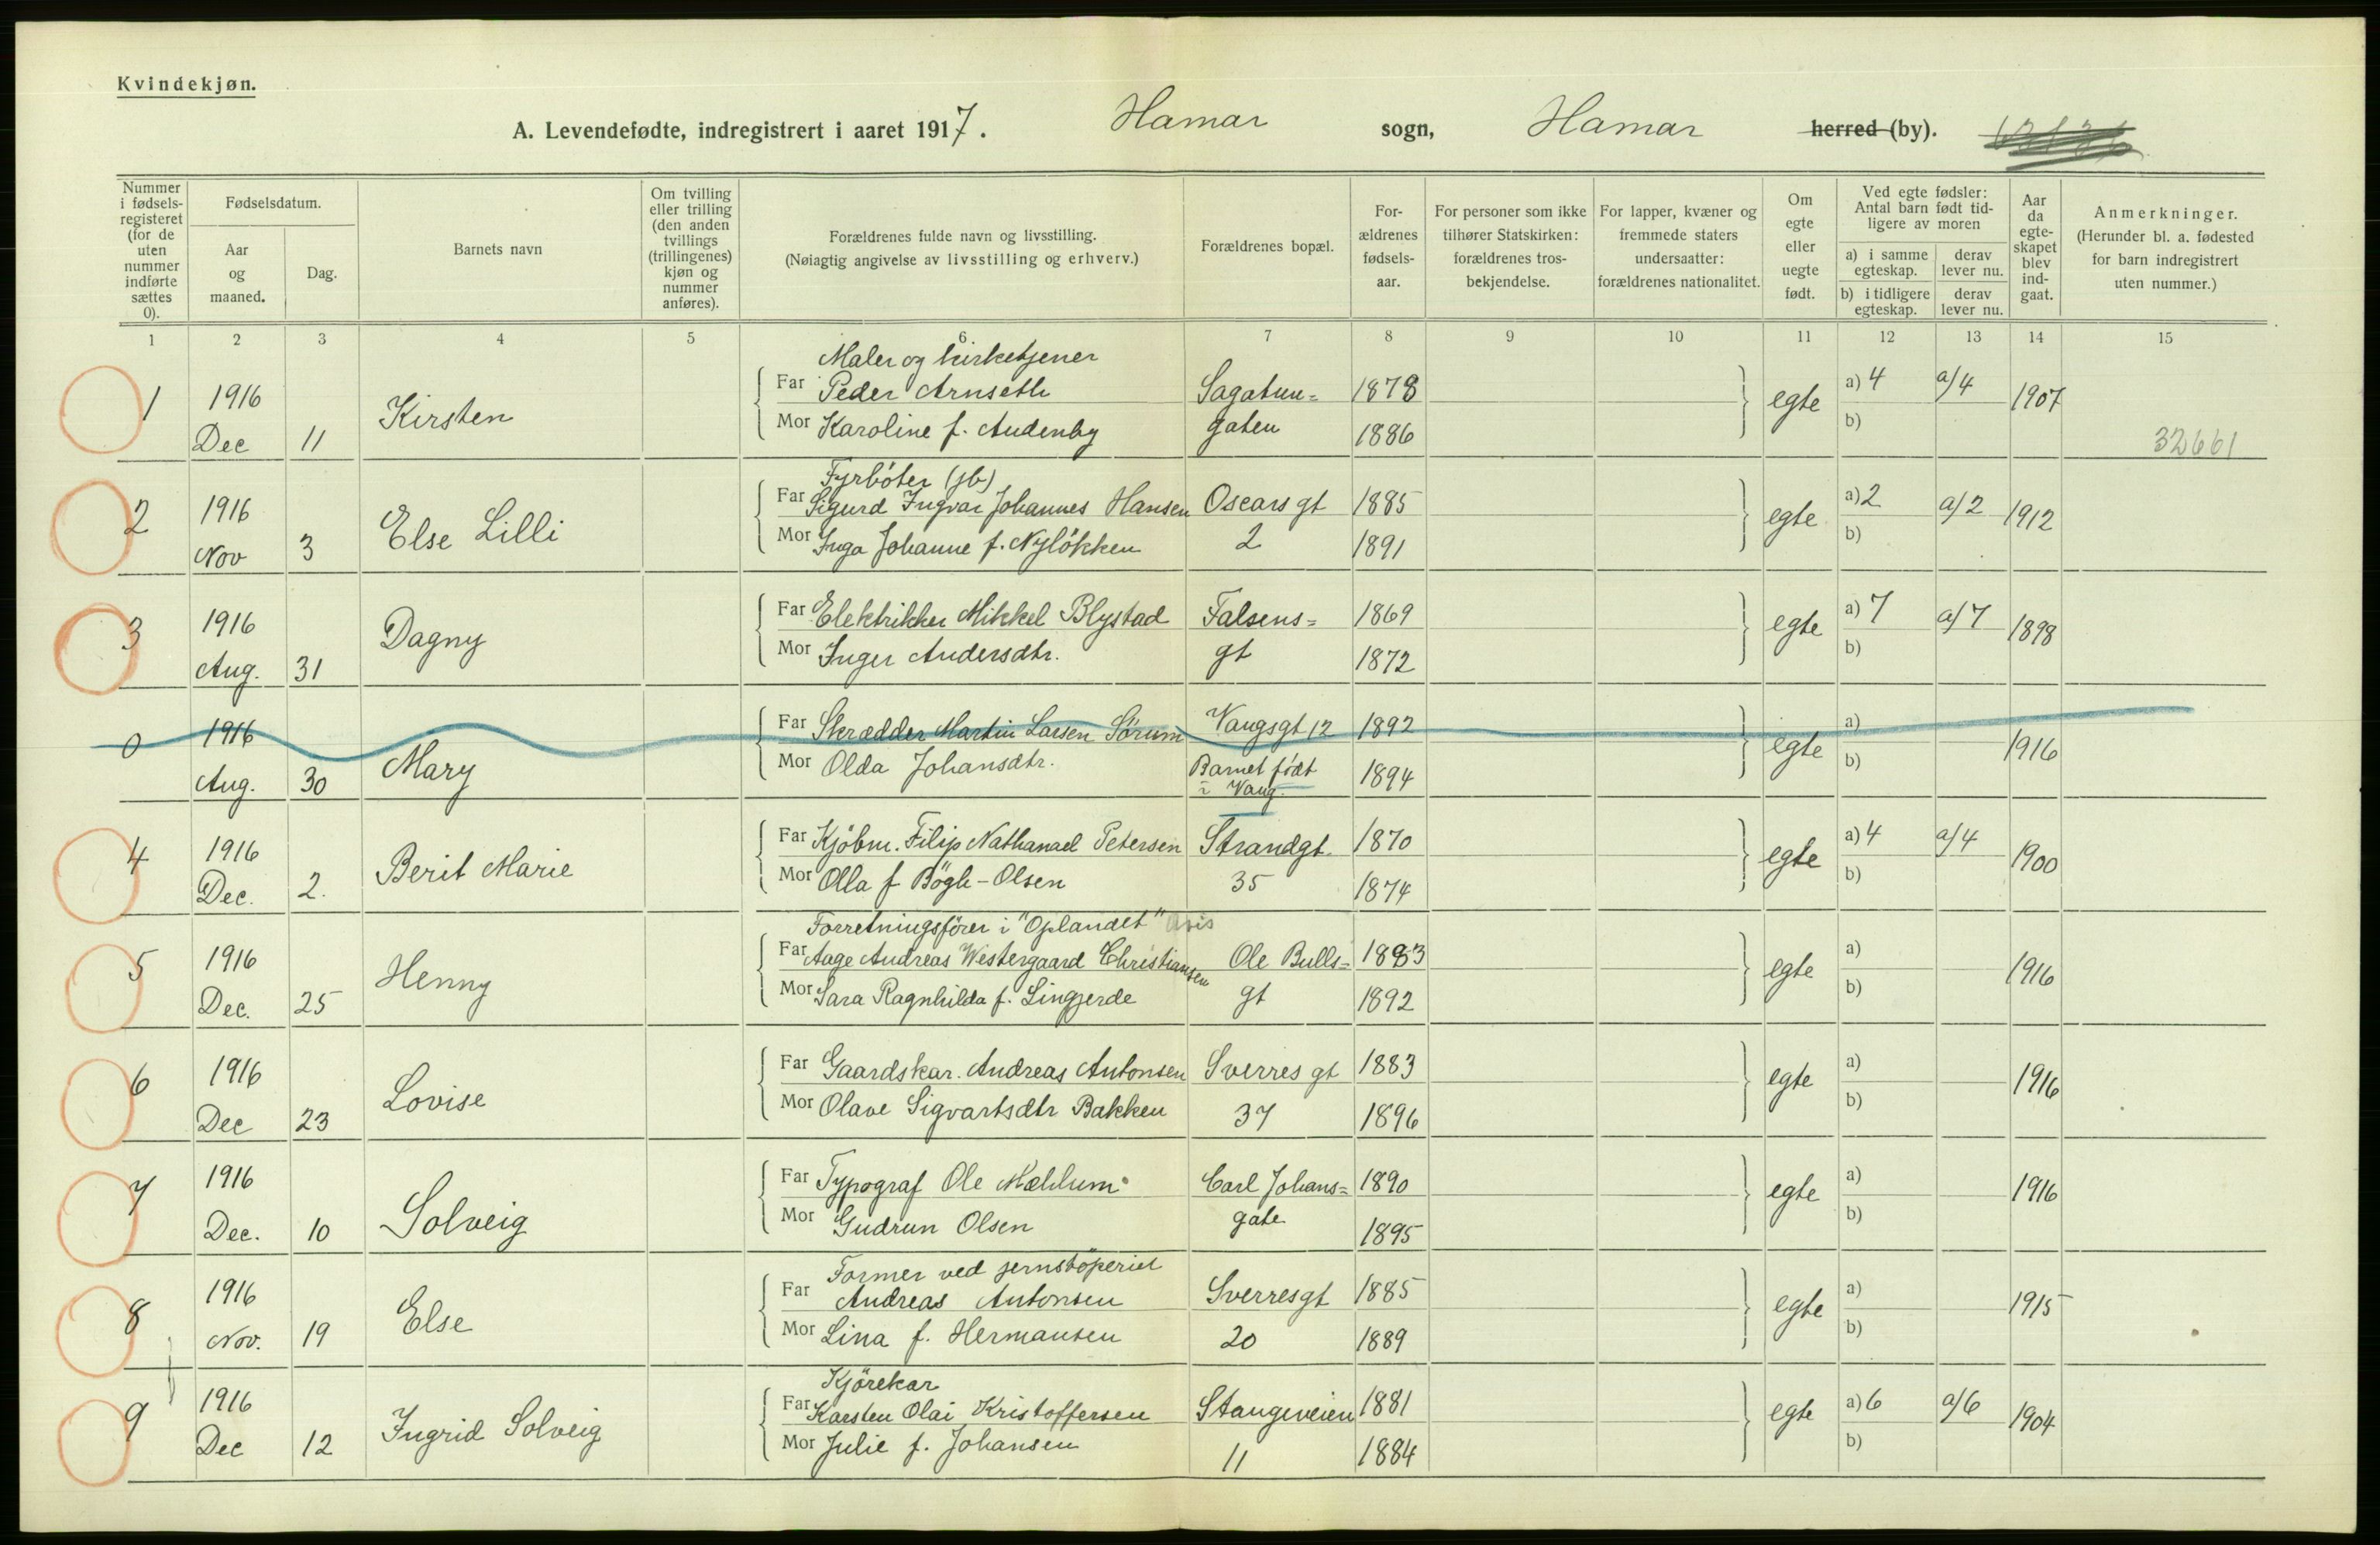 Kvindekjøn.
A. Levendefødte, indregistrert i aaret 1917. Hamar sogn, Hamar herred (by).
Nummer i fødsels-registeret (for de uten nummer indførte sættes 0).
Fødselsdatum.
Aar og maaned.
Dag.
Barnets navn
Om tvilling eller trilling (den anden tvillings (trillingenes) kjøn og nummer anføres).
Forældrenes fulde navn og livsstilling.
(Nøiagtig angivelse av livsstilling og erhverv.)
Forældrenes bopæl.
For-ældrenes fødsels-aar.
For personer som ikke tilhører Statskirken: forældrenes tros-bekjendelse.
For lapper, kvæner og fremmede staters undersaatter: forældrenes nationalitet.
Om egte eller uegte født.
Ved egte fødsler: Antal barn født tid-ligere av moren
a) i samme egteskap.
derav lever nu.
b) i tidligere egteskap.
derav lever nu.
Aar da egte-skapet blev ind-gaat.
Anmerkninger.
(Herunder bl. a. fødested for barn indregistrert uten nummer.)
1 2 3 4 5 6 7 8 9 10 11 12 13 14 15
Maler og kirketjener
1 1916 Kirsten Far Peder Arnseth Sagatun= 1878 egte a) 4 a/4 1907
Dec 11 Mor Karoline f. Audenby gaten 1886 b) 32661
Fyrbøter (jb)
2 1916 Else Lilli Far Sigurd Ingvar Johannes Hansen Oscars gt 1885 egte a) 2 a/2 1912
Nov 3 Mor Inga Johanne f. Nyløkken 2 1891 b)
3 1916 Dagny Far Elektriker Mikkel Blystad Falsens= 1869 egte a) 7 a/7 1898
Aug. 31 Mor Inger Andersdtr. gt 1872 b)
0 1916 Mary Far Skrædder Martin Larsen Sörum Vangsgt 12 1892 egte a) 1916
Aug. 30 Mor Olda Johansdtr. Barnet født i Vang. 1894 b)
4 1916 Berit Marie Far Kjøbm. Filip Nathanael Petersen Strandgt. 1870 egte a) 4 a/4 1900
Dec. 2. Mor Olla f Bögh-Olsen 35 1874 b)
Forretningsfører i "Oplandet" Avis
5 1916 Henny Far Aage Andreas Westergaard Christiansen Ole Bulls= 1883 egte a) 1916
Dec. 25 Mor Sara Ragnhilda f. Lingjerde gt 1892 b)
6 1916 Lovise Far Gaardskar. Andreas Antonsen Sverres gt 1883 egte a) 1916
Dec 23 Mor Olave Sigvartsdtr Bakken 37 1896 b)
7 1916 Solveig Far Typograf Ole Mæhlum Carl Johans= 1890 egte a) 1916
Dec. 10 Mor Gudrun Olsen gate 1895 b)
Former ved jernstöperiet
8 1916 Else Far Andreas Antonsen Sverresgt 1885 egte a) 1915
Nov. 19 Mor Lina f. Hermansen 20 1889 b)
Kjörekar
9 1916 Ingrid Solveig Far Karsten Olai Kristoffersen Stangeveien 1881 egte a) 6 a/6 1904
Dec 12 Mor Julie f. Johansen 11 1884 b)